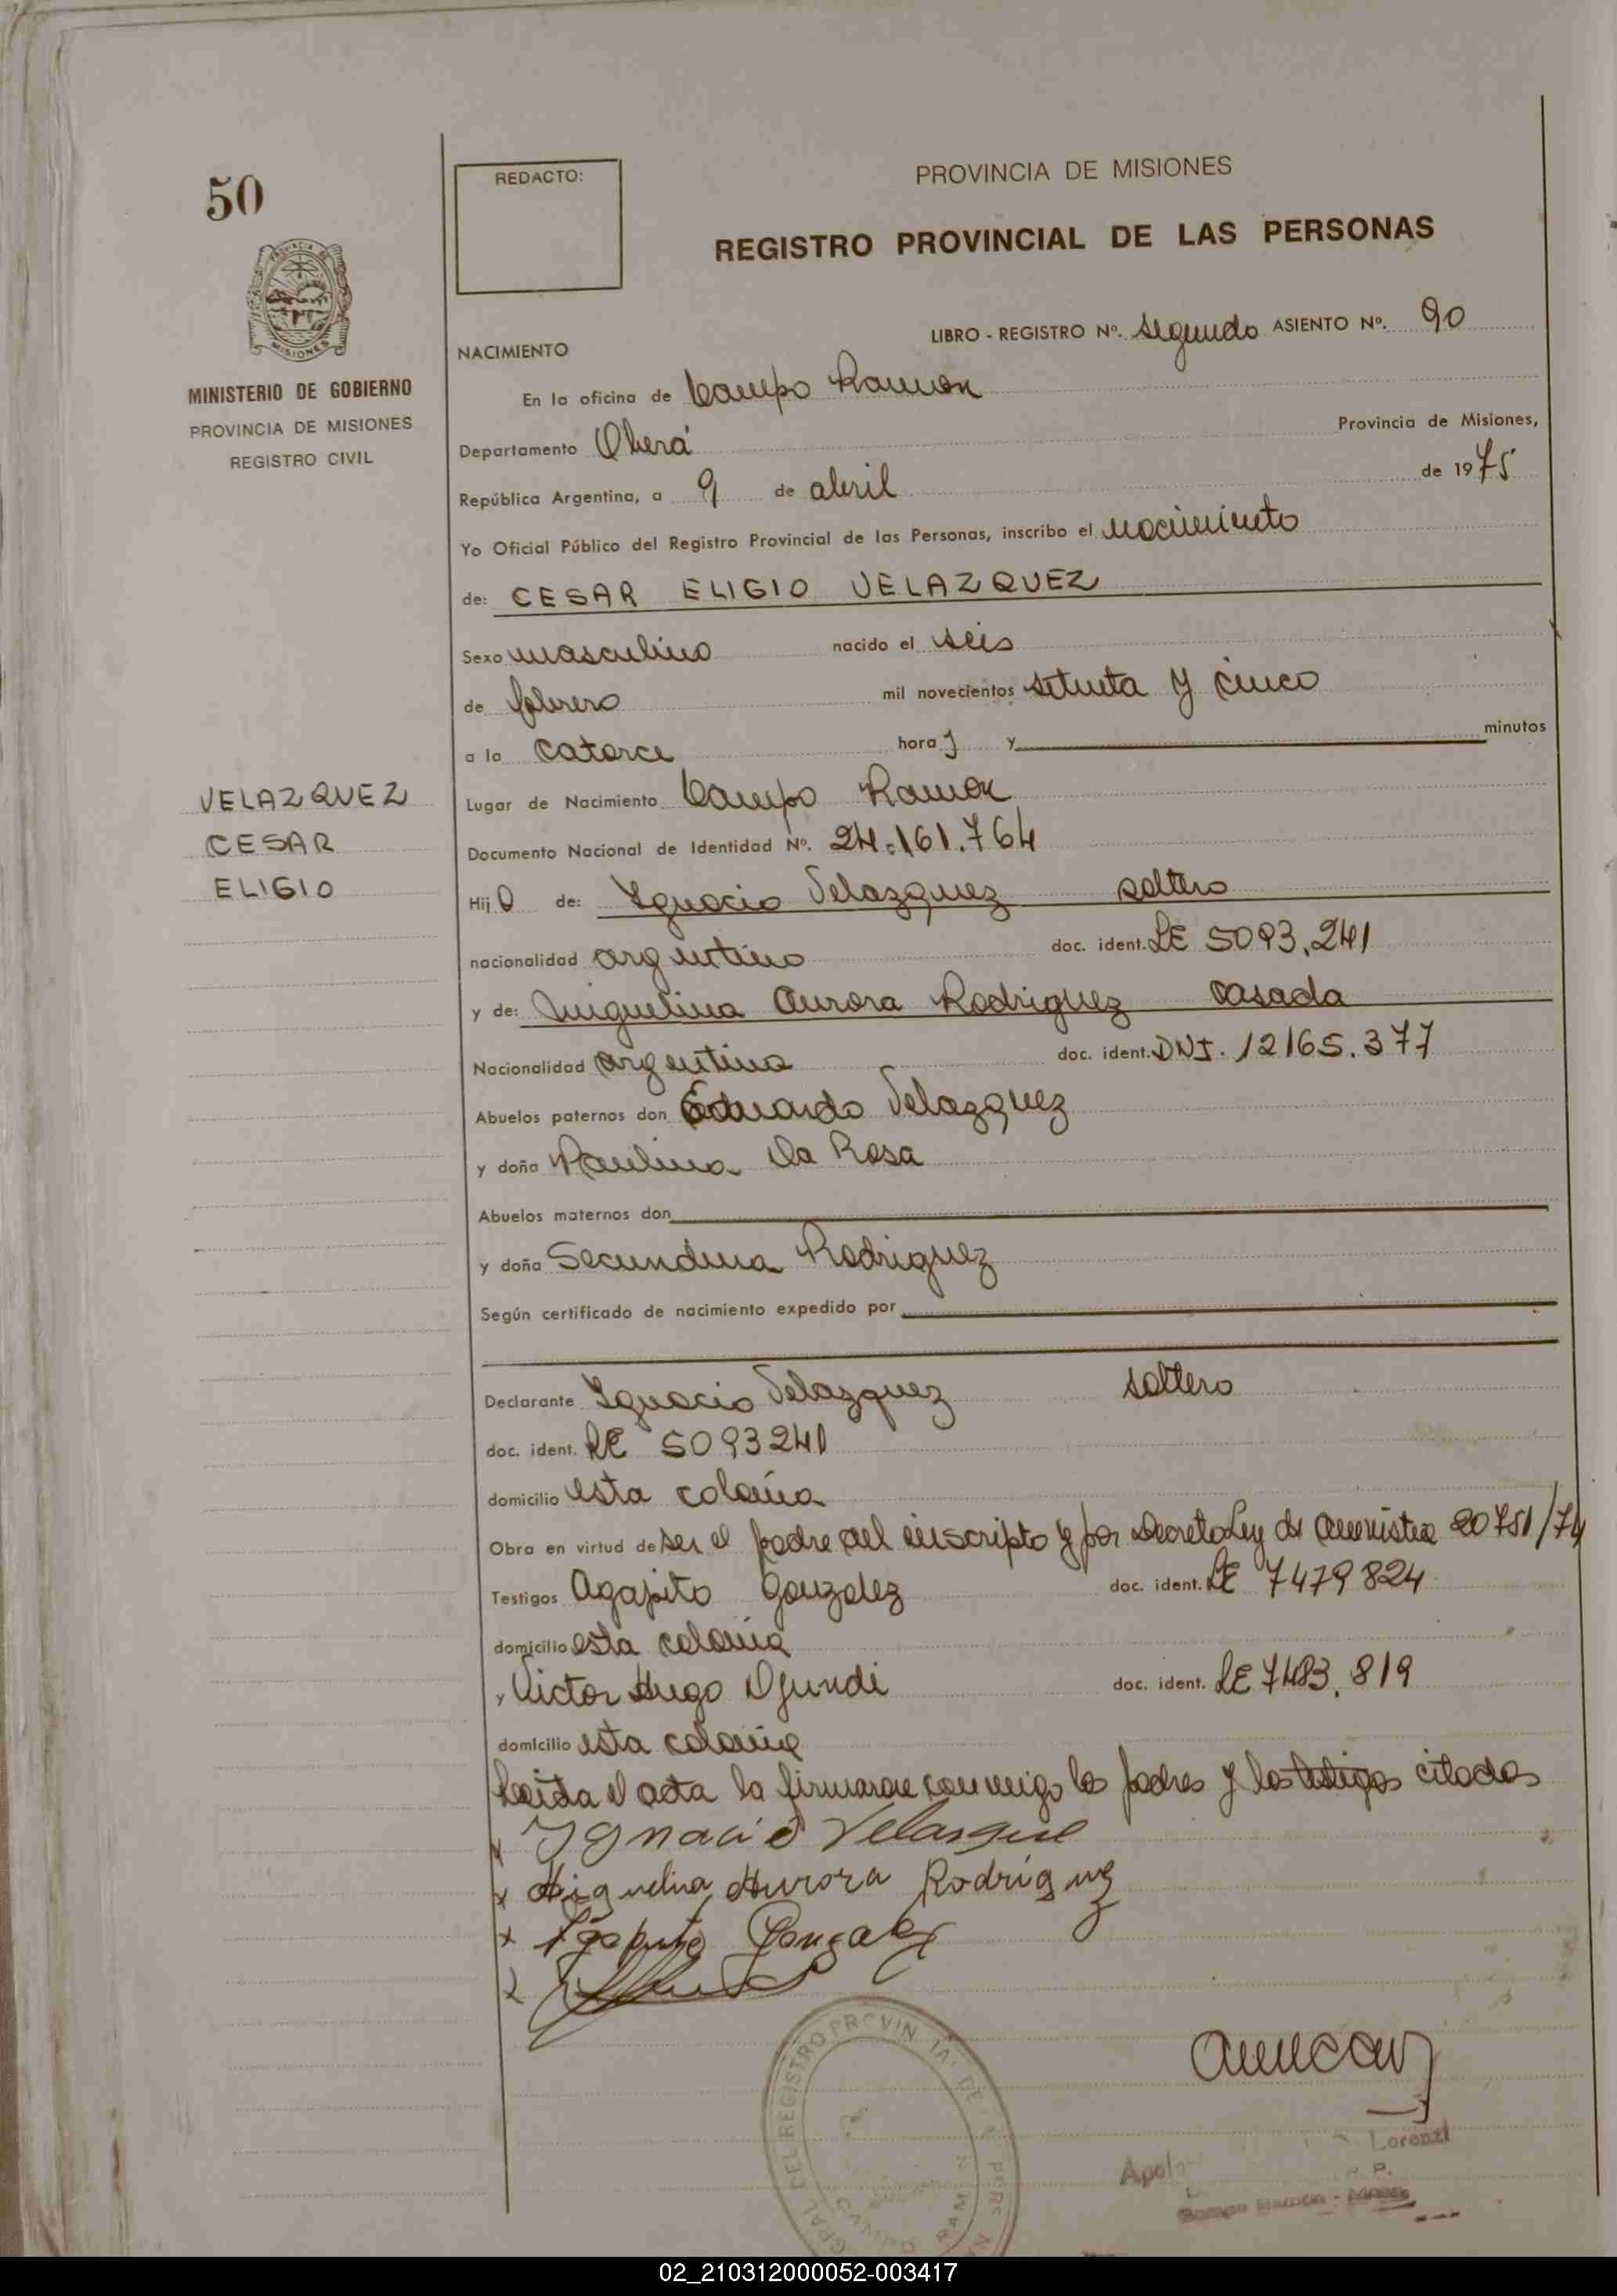 50
REDACTO:
PROVINCIA DE MISIONES
REGISTRO PROVINCIAL DE LAS PERSONAS
PROVINCIA DE
MISIONES
MINISTERIO DE GOBIERNO
PROVINCIA DE MISIONES
REGISTRO CIVIL
LIBRO - REGISTRO Nº. Segundo ASIENTO Nº. 90
NACIMIENTO
En la oficina de Campo Ramon
Departamento Oberá Provincia de Misiones,
República Argentina, a 9 de abril de 1975
Yo Oficial Público del Registro Provincial de las Personas, inscribo el nacimiento
de: CESAR ELIGIO VELAZQUEZ
Sexo masculino nacido el seis
de febrero mil novecientos setenta y cinco
a la catorce hora s y minutos
VELAZQUEZ
CESAR
ELIGIO
Lugar de Nacimiento Campo Ramon
Documento Nacional de Identidad Nº. 24.161.764
Hijo de: Ygnacio Velazquez soltero
nacionalidad argentino doc. ident. LE 5093.241
y de: Miguelina Aurora Rodriguez casada
Nacionalidad argentina doc. ident. DNI. 12165.377
Abuelos paternos don Eduardo Velazquez
y doña Paulina Da Rosa
Abuelos maternos don
y doña Secundina Rodriguez
Según certificado de nacimiento expedido por
Declarante Ygnacio Velazquez soltero
doc. ident. LE 5093241
domicilio esta colonia
Obra en virtud de ser el padre del inscripto y por Decreto Ley de amnistia 20751/74
Testigos Agapito Gonzalez doc. ident. LE 7479824
domicilio esta colonia
y Victor Hugo doc. ident. LE 7483.819
domicilio esta colonia
Leida el acta la firmaron conmigo los padres y los testigos citados
x Ygnacio Velasque
x Miguelina Aurora Rodriguez
x Agapito Gonzalez
x
DEL REGISTRO PROVINCIAL DE LAS PERS
CAMPO RAMON
Lorenzi
Campo Ramon - Mnes.
02_210312000052-003417